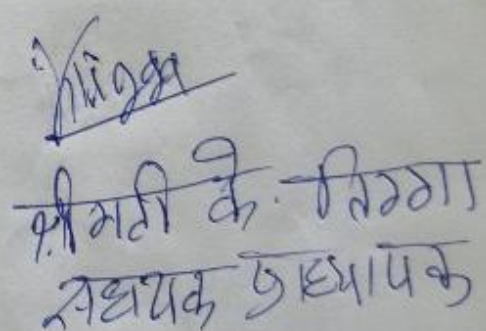 श्रीमती के. तिग्गा
सहायक प्राध्यापक